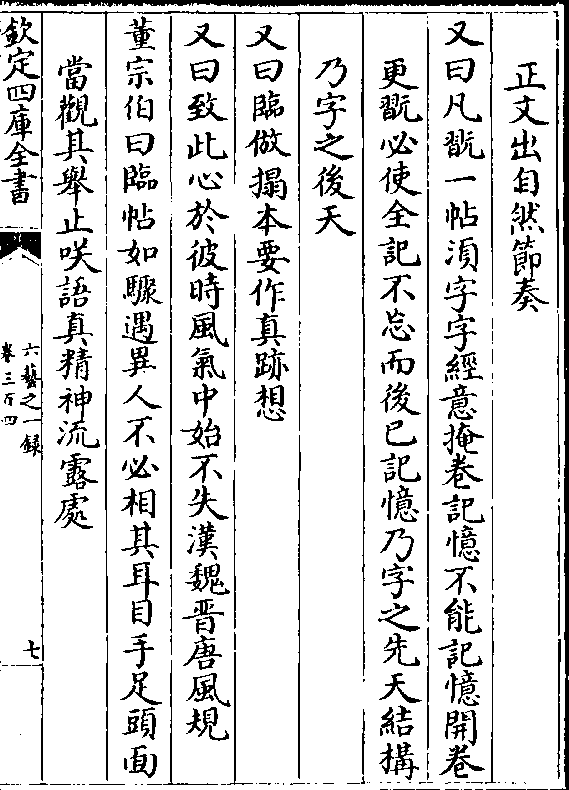 正文出自然節奏
又曰凡翫一帖湏字字經意掩卷記憶不能記憶開卷
更翫必使全記不忘而後已記憶乃字之先天結搆
乃字之後天
又曰臨倣搨本要作真跡想
又曰致此心於彼時風氣中始不失漢魏晋唐風規
董宗伯曰臨帖如驟遇異人不必相其耳目手足頭面
當觀其舉止咲語真精神流露處
欽定四庫全書
六藝之一録
卷三百四
七